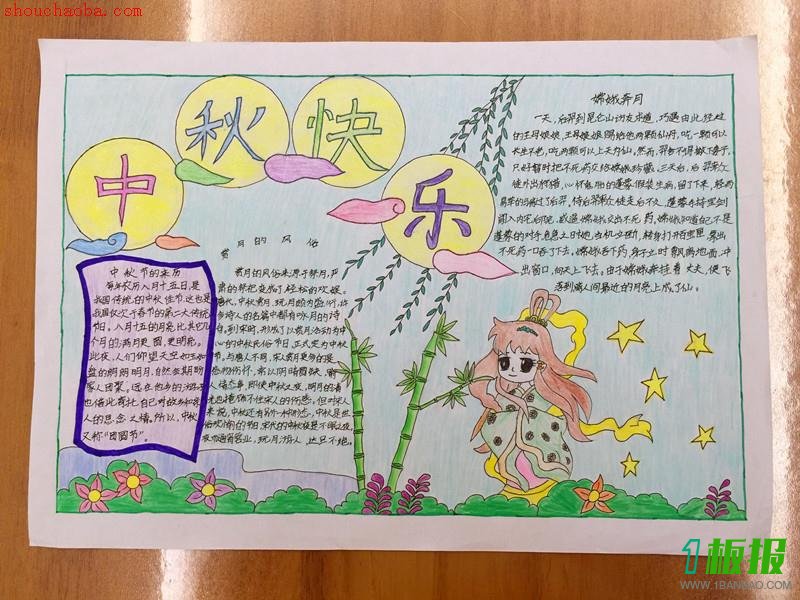 shouchaoba.com
中
秋
快
乐
中秋节的来历
每年农历八月十五日,是
我国传统的中秋佳节。这也是
我国仅次于春节的第二大传统
节日。八月十五的月亮比其它几
个月的满月更圆,更明亮。
此夜,人们仰望天空如玉如
盘的朗朗明月,自然会期盼
家人团聚。远在他乡的游子
也借此寄托自己对故乡和亲
人的思念之情。所以,中秋
又称"团圆节"。
赏月的风俗
赏月的风俗来源于祭月,严
肃的祭祀变成了轻松的欢娱。
唐代,中秋赏月、玩月颇为盛行,许
多诗人的名篇中都有咏月的诗
句。到宋时,形成了以赏月活动为中
心的中秋民俗节日,正式定为中秋
节。与唐人不同,宋人赏月更多的是
感物伤怀,常以阴晴圆缺,喻
人情态事,即使中秋之夜,明月的清
光也掩饰不住宋人的伤感。但对宋人
来说,中秋还有另一种形态,中秋是世
俗欢愉的节日,宋代的中秋夜是不眠之夜,
夜市通宵营业,玩月游人,达旦不绝。
嫦娥奔月
一天,后羿到昆仑山访友求道,巧遇由此经过
的王母娘娘,王母娘娘赐给他两颗仙丹,吃一颗可以
长生不老,吃两颗可以上天为仙。然而,羿舍不得撇下妻子,
只好暂时把不死药交给嫦娥珍藏。三天后,后羿率众
徒外出狩猎,心怀鬼胎的蓬蒙假装生病,留了下来,轻而
易举的骗过了后羿。待后羿率众徒走后不久,蓬蒙手持宝剑
闯入内宅后院,威逼嫦娥交出不死药,嫦娥知道自己不是
蓬蒙的对手,危急之时她当机立断,转身打开百宝匣,拿出
不死药一口吞了下去。嫦娥吞下药,身子立时飘离地面、冲
出窗口,向天上飞去。由于嫦娥牵挂着丈夫,便飞
落到离人间最近的月亮上成了仙。
1板报
WWW.1BANBAO.COM